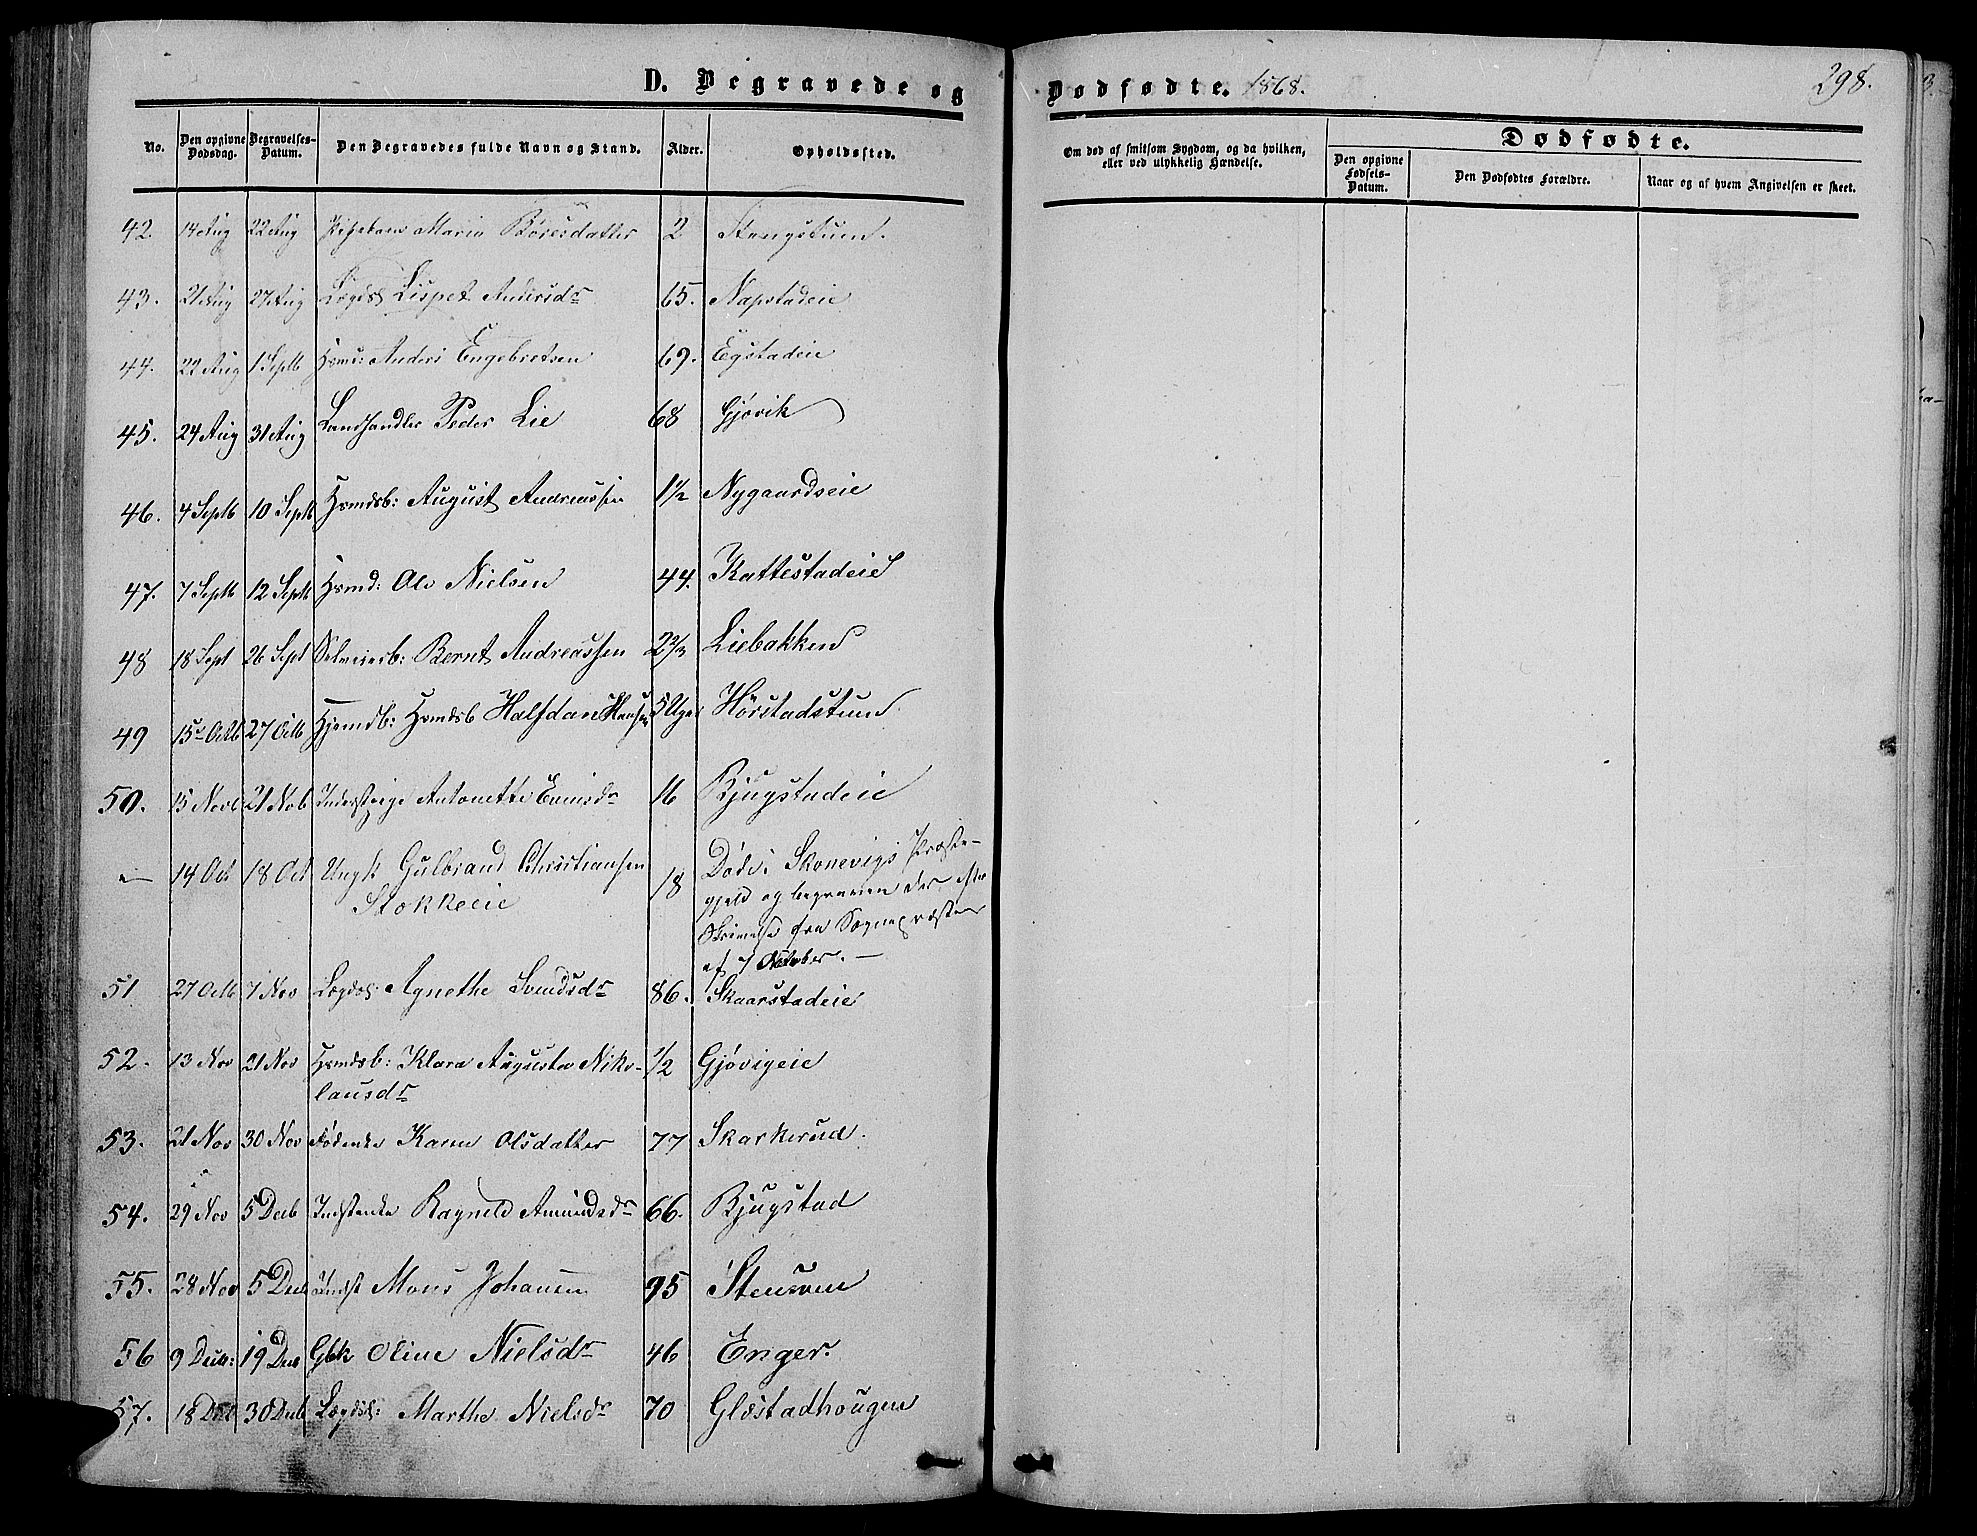 D. Begravede og Dødfødte. 1868. 298.
No. Den opgivne Dødsdag. Begravelses-Datum. Den Begravedes fulde Navn og Stand. Alder. Opholdssted.
Om død af smitsom Sygdom, og da hvilken, eller ved ulykkelig Hændelse.
Dødfødte.
Den opgivne Fødsels-Datum. Den Dødfødtes Forældre. Naar og af hvem Angivelsen er skeet.
42. 14 Aug 22 Aug Marie Børesdatter 2 Stengstuen.
43. 21 Aug 27 Aug Lægdsl Lispet Andersdr 65. Napstadeie
44. 22 Aug 1 Septb Hsmd: Anders Engebretsen 69. Egstadeie
45. 24 Aug 31 Aug Landhandler Peder Lie 68 Gjøvik
46. 4 Septb 10 Septb Hsmdsb: August Andreassen 1½ Nygaardseie
47. 7 Septb 12 Septb Hsmd: Ole Nielsen 44. Kattestadeie
48 18 Sept 26 Sept Selveierb: Bernt Andreassen 2⅔ Liebakken
49 15de Octb 27 Octb Hjemdb: Hsmdsb Halfdan Hansen 5 Uger Hørstadstuen.
50. 15 Novb 21 Nob Inderstpige Antonette Evensdr 16 Bjugstadeie
— 14 Oct 18 Oct Ungk Gulbrand Christiansen 18 Døde i Skonevigs Præste-
Stokkeeie gjeld og begraven der efter
Skrivelse fra Sognepræsten
af 7 October. —
51 27 Octb 7 Nov Lægdsl: Agnethe Svendsdr 86. Skaarstadeie
52. 13 Nov 21 Nov Hsmdsb: Klara Augusta Niko- ½ Gjøvigeie
lausdr
53. 21 Nov 30 Nov Føderenke Karen Olsdatter 77 Skarkerud.
54. 29 Nov 5 Decb Indstenke Ragneld Amundsdr 66. Bjugstad
55. 28 Nov 5 Decb Indst Mons Johansen 95 Stensven
56 9 Decb: 19 Decb Gbk Oline Nielsdr 46 Enger.
57. 18 Decb 30 Decb Lægdsl: Marthe Nielsdr 70 Gløstadhougen